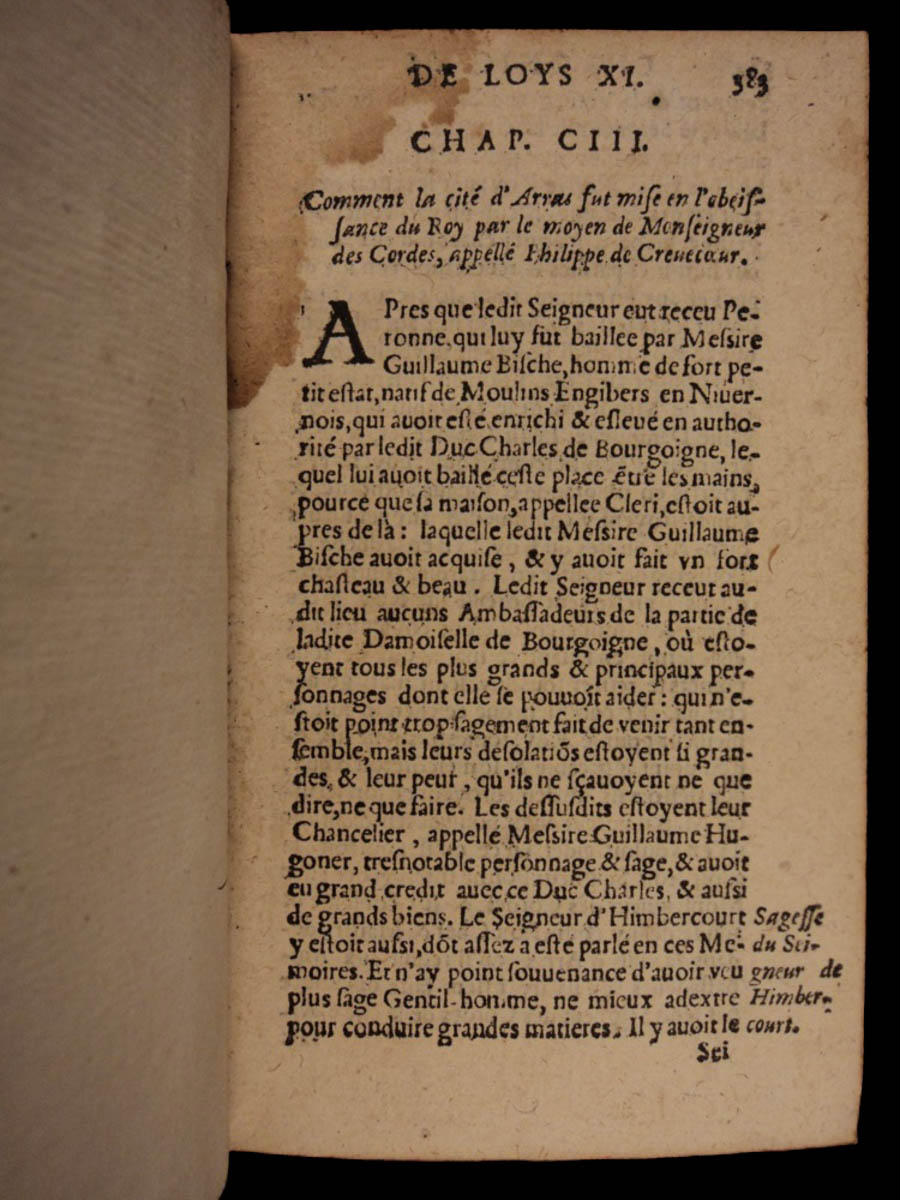 DE LOYS XI. 383
CHAP. CIII.
Comment la cité d'Arras fut mise en l'obeis-
sance du Roy par le moyen de Monseigneur
des Cordes, appellé Philippe de Creuecœur.
APres que ledit Seigneur eut receu Pe-
ronne, qui luy fut baillee par Messire
Guillaume Bische, homme de fort pe-
tit estat, natif de Moulins Engibers en Niuer-
nois, qui auoit esté enrichi & esleué en autho-
rité par ledit Duc Charles de Bourgoigne, le-
quel lui auoit baillé ceste place ẽtre les mains,
pource que sa maison, appellee Cleri, estoit au-
pres de là : laquelle ledit Messire Guillaume
Bische auoit acquise, & y auoit fait vn fort
chasteau & beau. Ledit Seigneur receut au-
dit lieu aucuns Ambassadeurs de la partie de
ladite Damoiselle de Bourgoigne, où esto-
yent tous les plus grands & principaux per-
sonnages dont elle se pouuoit aider : qui n'e-
stoit point trop sagement fait de venir tant en-
semble, mais leurs desolatiõs estoyent si gran-
des, & leur peur, qu'ils ne sçauoyent ne que
dire, ne que faire. Les dessusdits estoyent leur
Chancelier, appellé Messire Guillaume Hu-
goner, tresnotable personnage & sage, & auoit
eu grand credit auec ce Duc Charles, & aussi
de grands biens. Le Seigneur d'Himbercourt
y estoit aussi, dõt assez a esté parlé en ces Me-
moires. Et n'ay point souuenance d'auoir veu
plus sage Gentil-homme, ne mieux adextre
pour conduire grandes matieres. Il y auoit le
Sagesse
du Sei-
gneur de
Himber-
court.
Sei